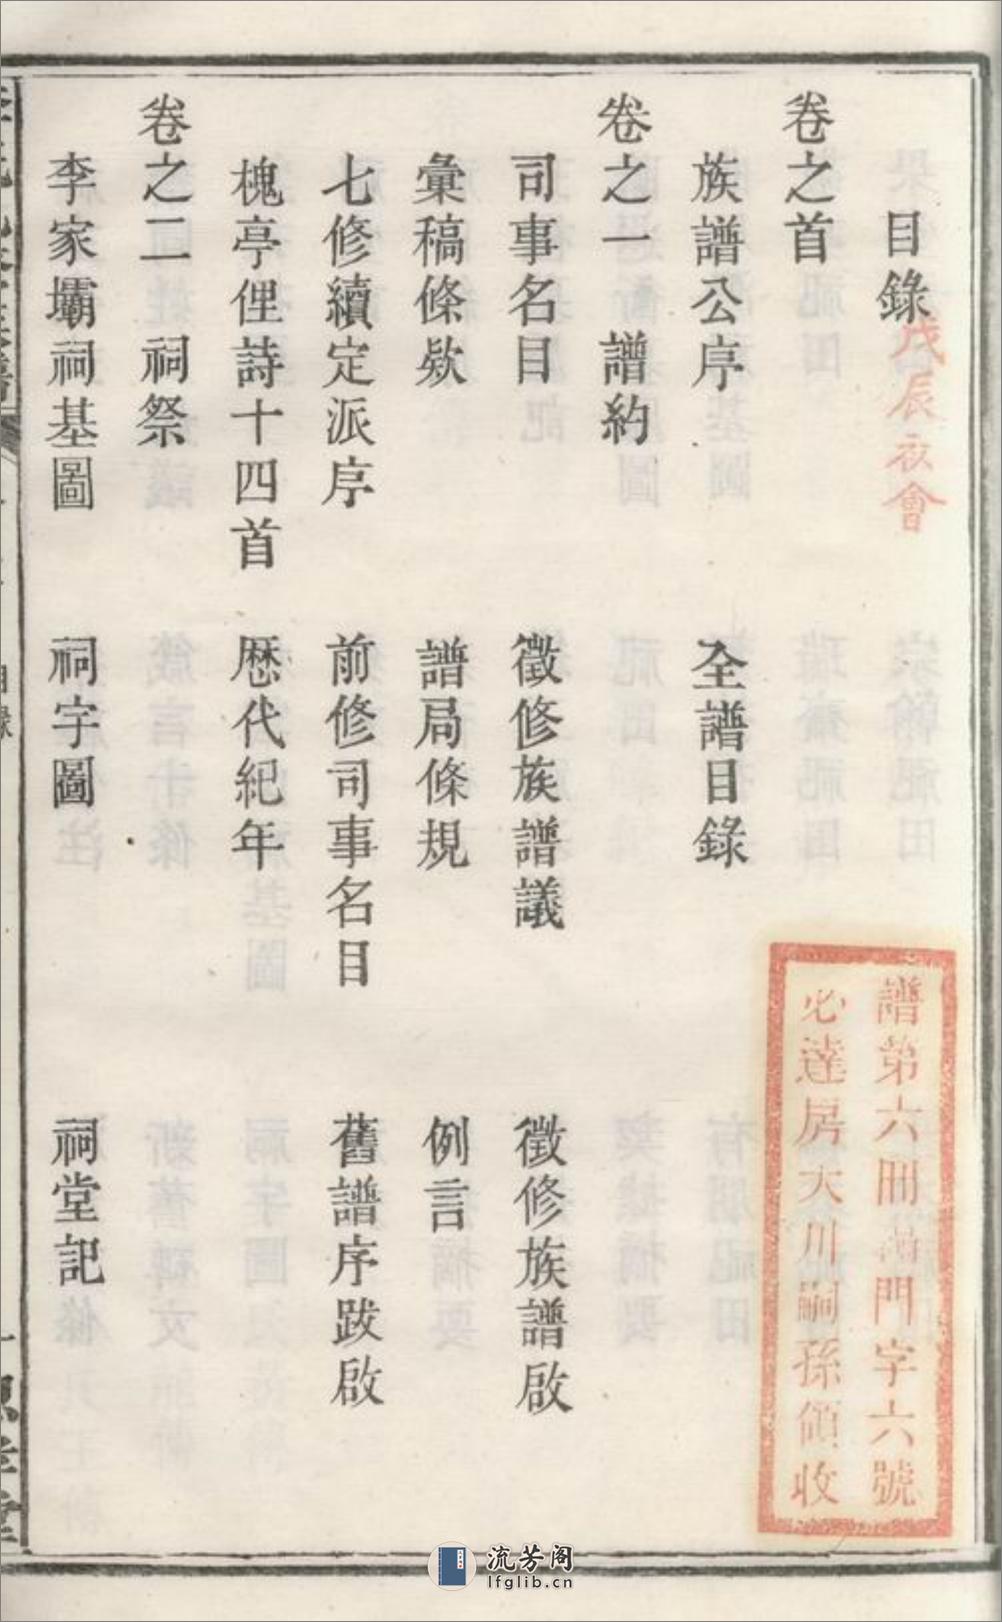 目錄
戊辰
會
卷之首
族譜公序　全譜目錄
卷之一　譜約
司事名目　徵修族譜議　徵修族譜啟
彙稿條欵　譜局條規　例言
七修續定派序　前修司事名目　舊譜序跋啟
槐亭俚詩十四首　歷代紀年
卷之二　祠祭
李家壩祠基圖　祠宇圖　祠堂記
譜第六冊
門字六號
必達房天川嗣孫領收
目錄
流芳阁
lfglib.cn